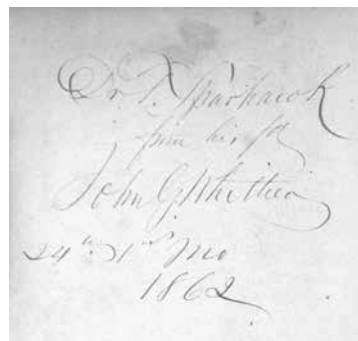 Dr. T. Sparhawk
from his frd
John G Whittier
24th 1st Mo
1862